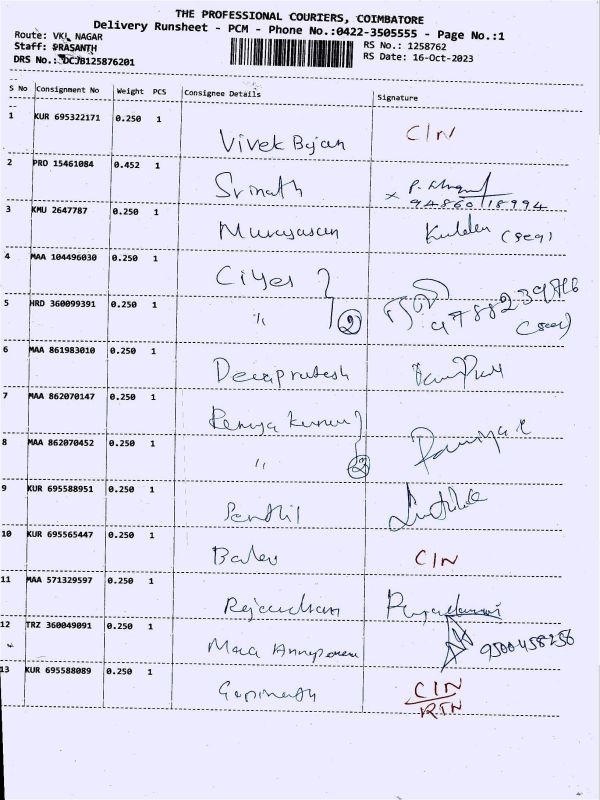 THE PROFESSIONAL COURIERS, COIMBATORE
Delivery Runsheet - PCM - Phone No.:0422-3505555 - Page No.:1
Route: VKL NAGAR
Staff: PRASANTH
DRS No.: DCJB125876201
RS No.: 1258762
RS Date: 16-Oct-2023
S No Consignment No Weight PCS Consignee Details Signature
1 KUR 695322171 0.250 1 Vivek Bojan CIN
2 PRO 15461084 0.452 1 Srinath
94860 18994
3 KMU 2647787 0.250 1 Murugasan (seq)
4 MAA 104496030 0.250 1 Ciyes
5 HRD 360099391 0.250 1 〃 2 (seq)
6 MAA 861983010 0.250 1
7 MAA 862070147 0.250 1 Ramya Kumar
8 MAA 862070452 0.250 1 〃 2
9 KUR 695588951 0.250 1 Senthil
10 KUR 695565447 0.250 1 CIN
11 MAA 571329597 0.250 1
12 TRZ 360049091 0.250 1 9500458256
13 KUR 695588089 0.250 1 Gopinath CIN
RTN